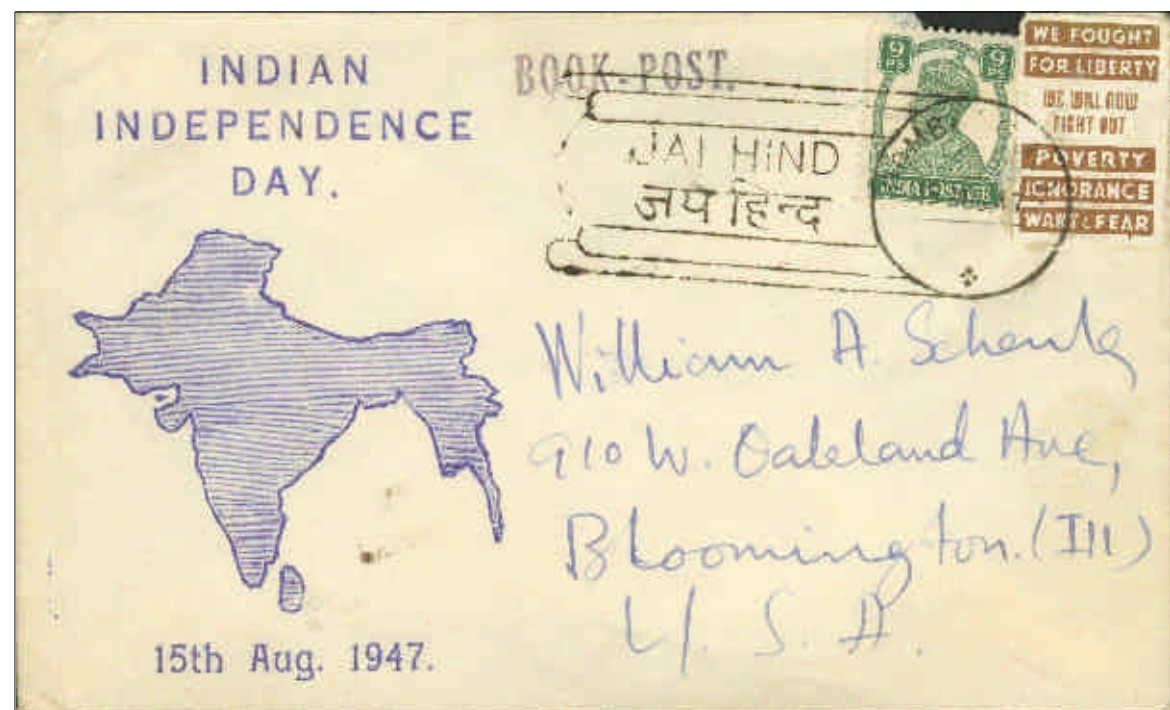 INDIAN
INDEPENDENCE
DAY.
15th Aug. 1947.
BOOK-POST.
JAI HIND
जय हिन्द
9 PS 9 PS
INDIA POSTAGE
WE FOUGHT
FOR LIBERTY
WE WILL NOW
FIGHT OUT
POVERTY
IGNORANCE
WANT & FEAR
William A. Schenk
910 W. Oakland Ave,
Bloomington. (Ill)
U. S. A.